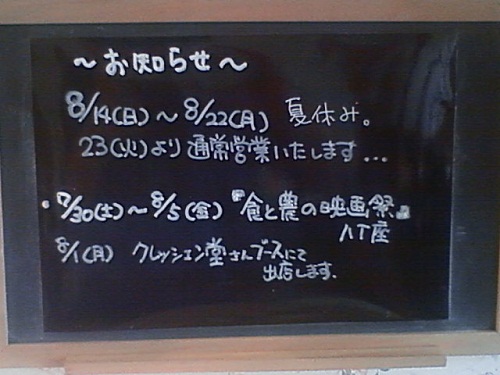 ～お知らせ～
8/14(日)～8/22(月) 夏休み。
23(火)より通常営業いたします...
・7/30(土)～8/5(金)『食と農の映画祭』
八丁座
8/1(月) クレッシェン堂さんブースにて
出店します。